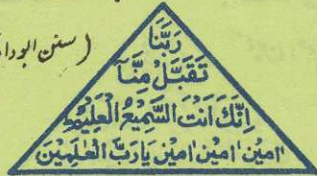 رَبَّنَا
(سنن ابوداؤ
تَقَبَّلْ مِنَّآ
اِنَّكَ اَنْتَ السَّمِيْعُ الْعَلِيْمُ
اٰمِيْن اٰمِيْن اٰمِيْن يَارَبَّ الْعٰلَمِيْنَ